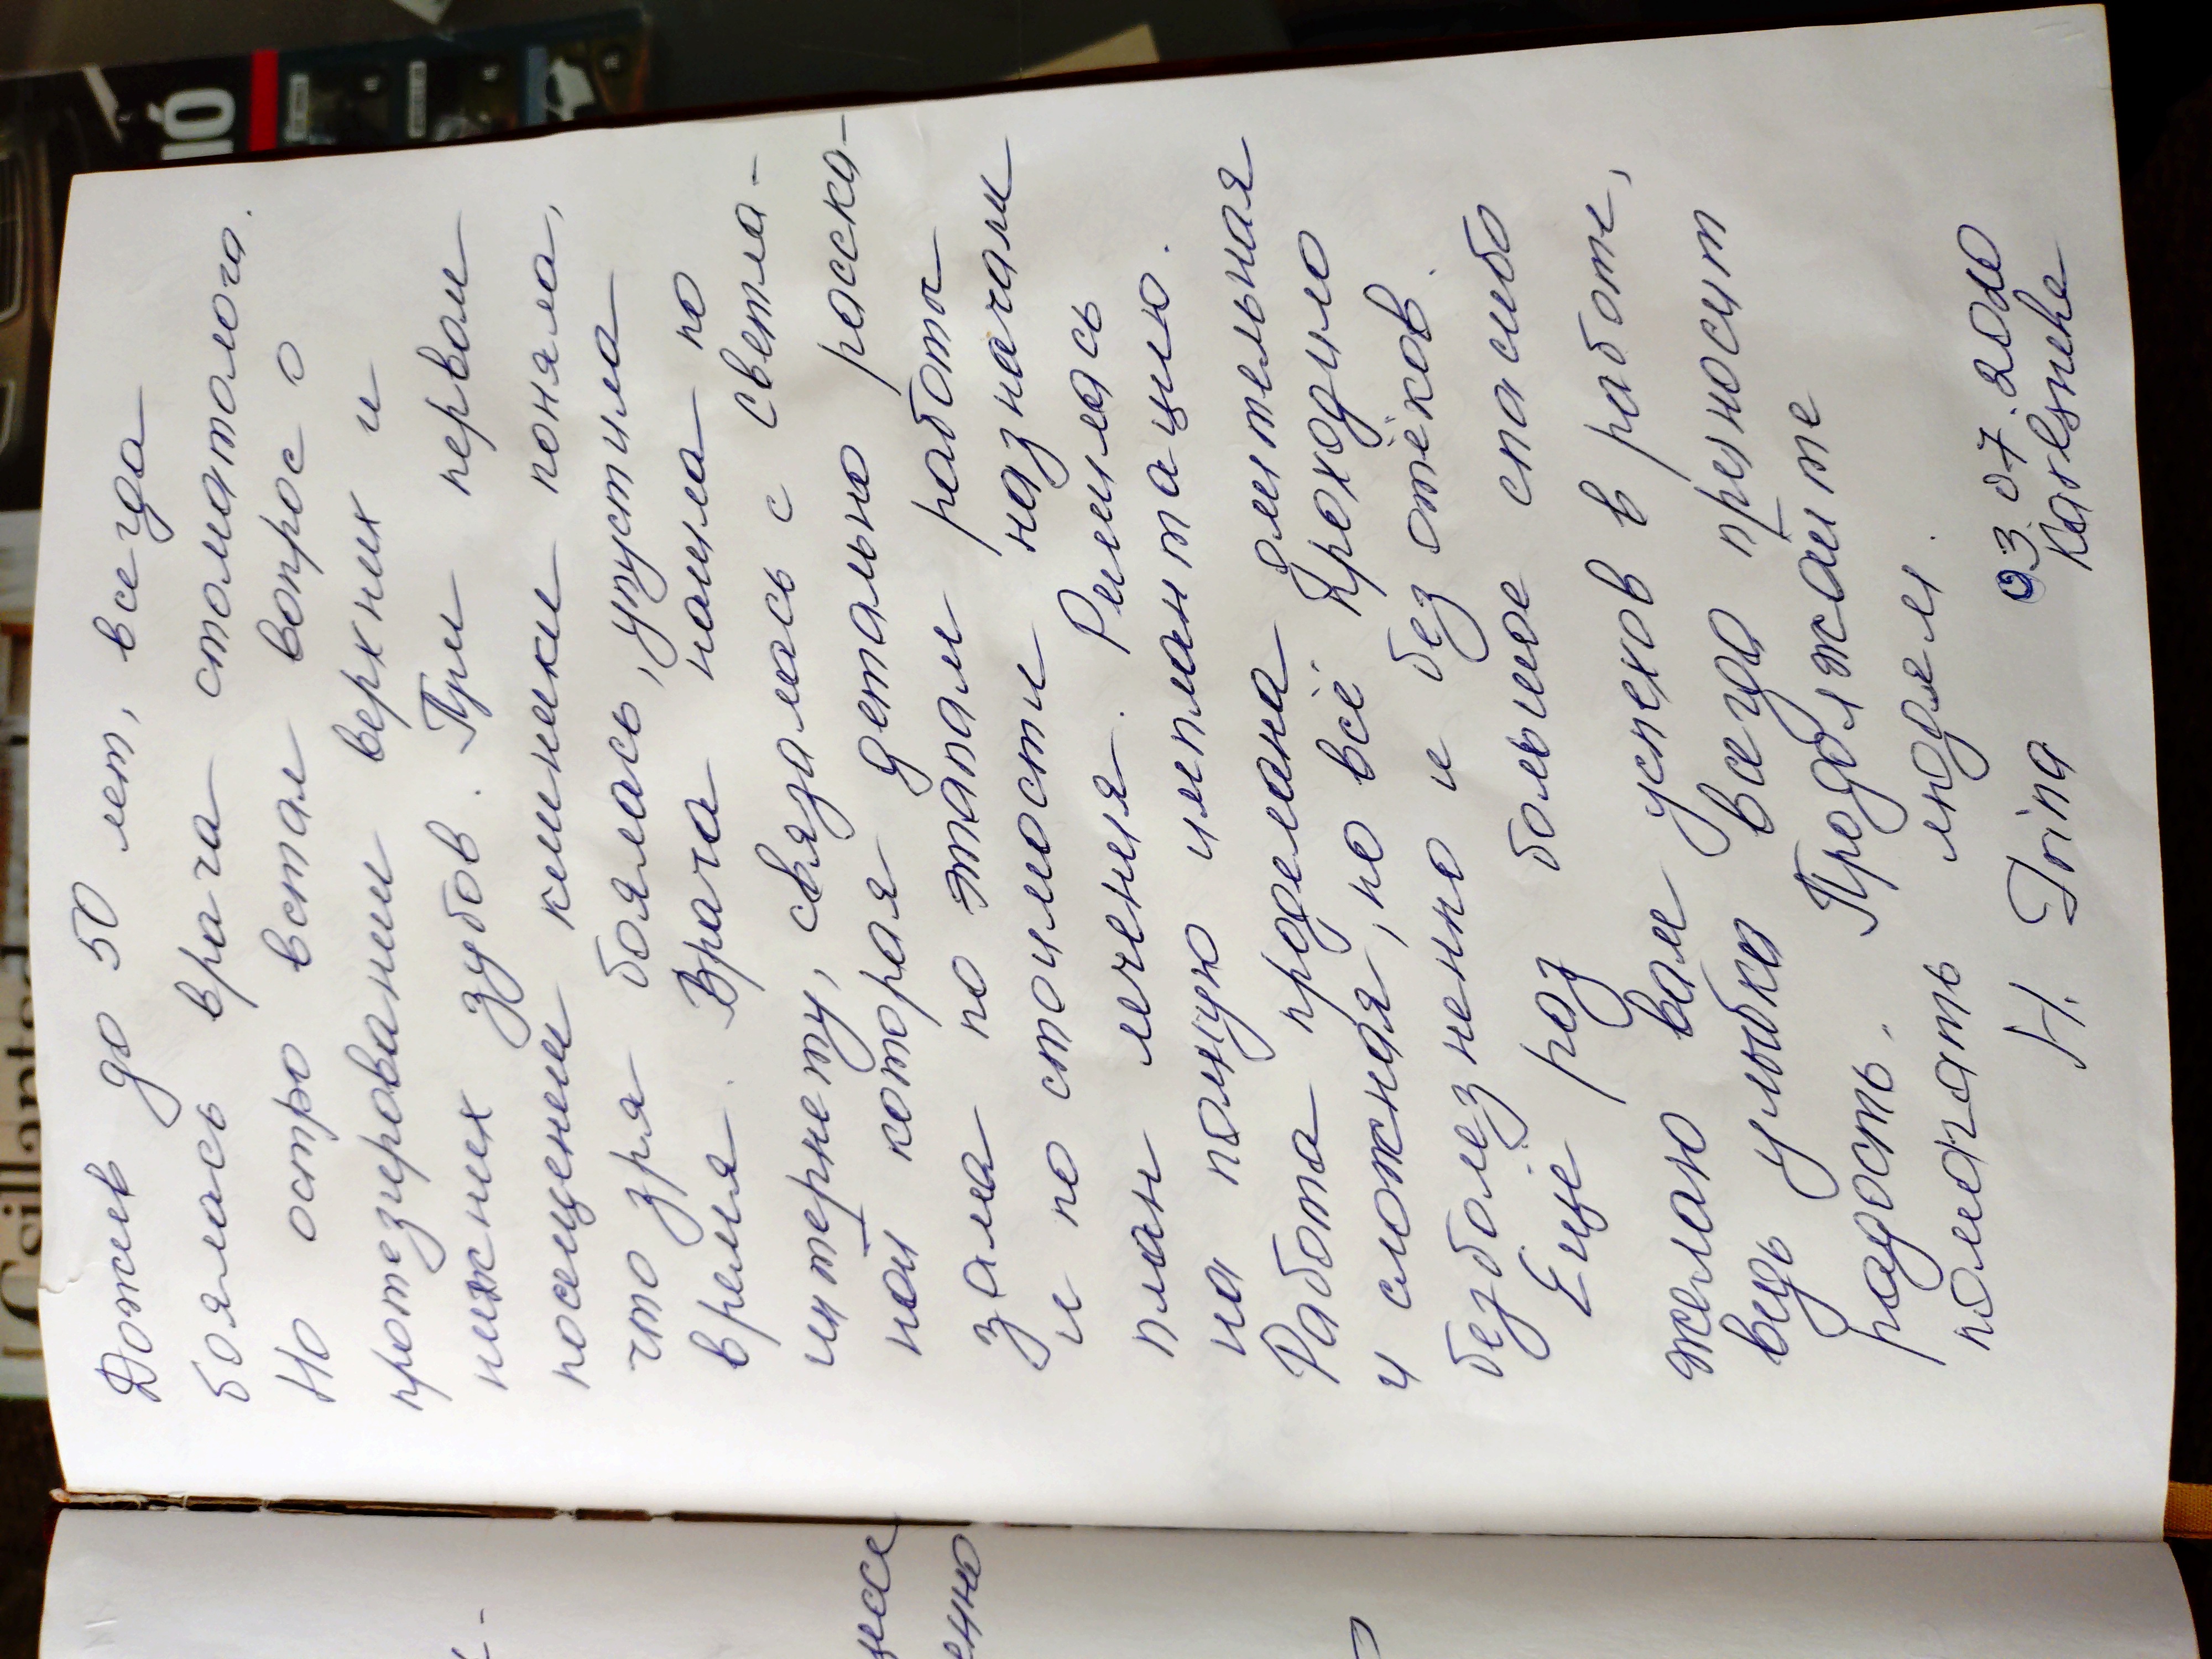 Дожив до 50 лет, всегда
боялась врача стоматолога.
Но остро встал вопрос о
протезировании верхних и
нижних зубов. При первом
посещении клиники поняла,
что зря боялась, упустила
время. Врача нашла по
интернету, связалась с Светла-
ной которая детально расска-
зала по этапам работы
и по стоимости назначам
план лечения. Решилась
на полную имплантацию.
Работа проделана длительная
и сложная, но всё проходило
безболезненно и без отёков.
Ещё раз большое спасибо
желаю вам успехов в работе,
ведь улыбка всегда приносит
радость. Продолжайте
помогать людям.
H. Irina 03.07.2020
Karlsruhe
Csillantsd
IÓ